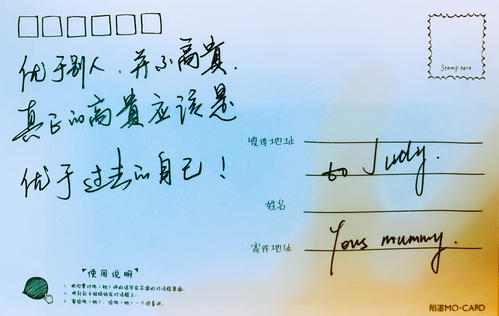 优于别人，并不高貴．
真正的高貴应该是
优于过去的自己！
Stamp here
收件地址
to Judy.
姓名
寄件地址
Yous mummy.
使用说明
陌墨MO·CARD